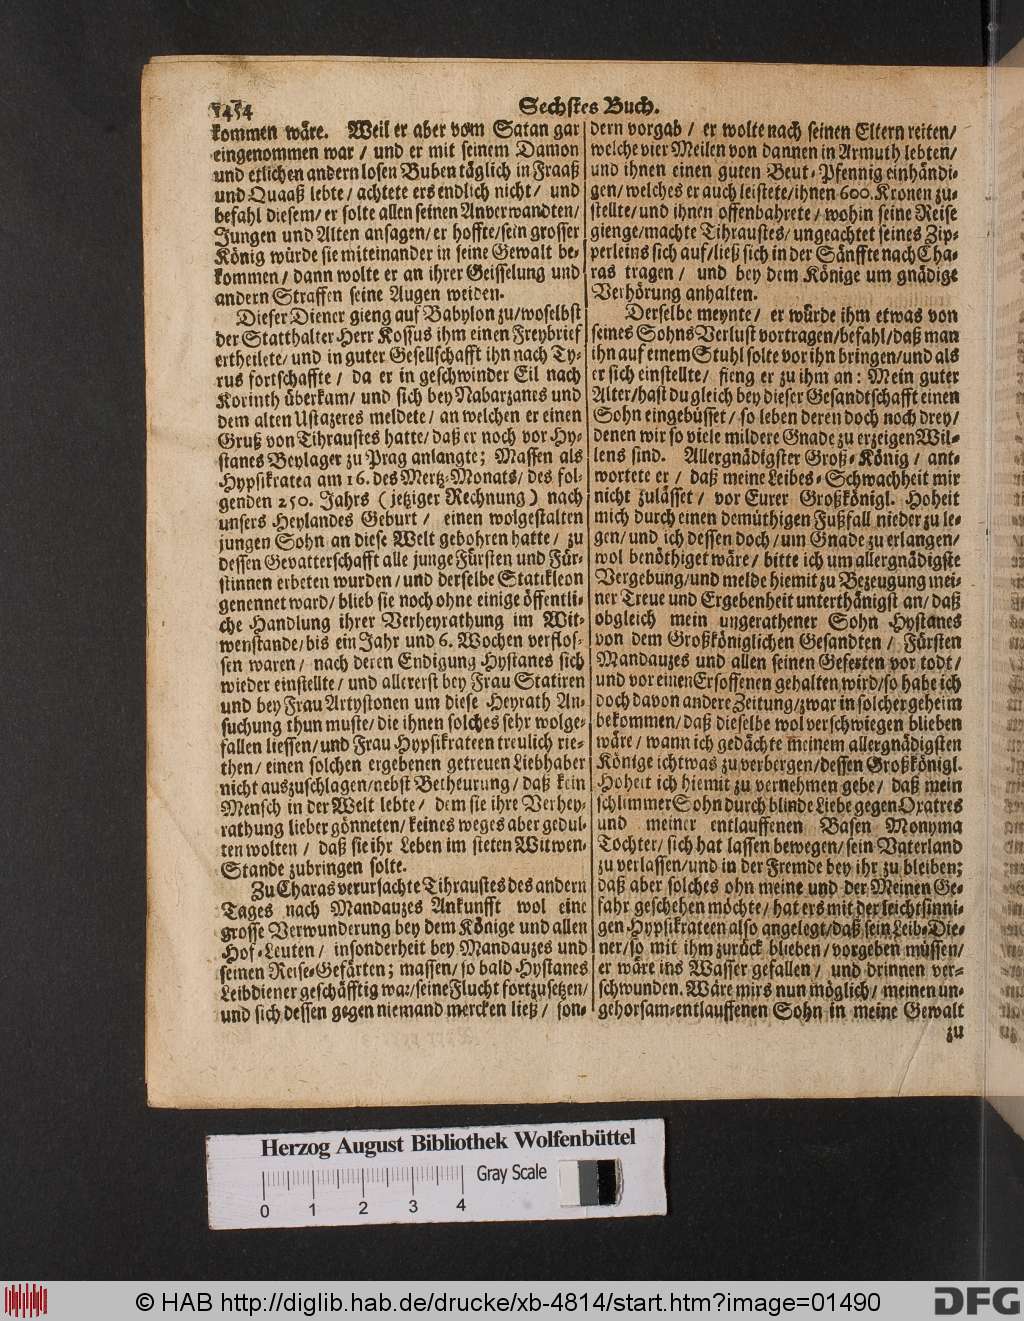 1454 Sechstes Buch.
kommen wäre. Weil er aber vom Satan gar
eingenommen war / und er mit seinem Damon
und etlichen andern losen Buben täglich in Fraaß
und Quaaß lebte / achtete ers endlich nicht / und
befahl diesem / er solte allen seinen Anverwandten /
Jungen und Alten ansagen / er hoffte / sein grosser
König würde sie miteinander in seine Gewalt be-
kommen / dann wolte er an ihrer Geisselung und
andern Straffen seine Augen weiden.
Dieser Diener gieng auf Babylon zu / woselbst
der Statthalter Herr Kossus ihm einen Freybrief
ertheilete / und in guter Gesellschafft ihn nach Ty-
rus fortschaffte / da er in geschwinder Eil nach
Korinth überkam / und sich bey Nabarzanes und
dem alten Ustazeres meldete / an welchen er einen
Gruß von Tihraustes hatte / daß er noch vor Hy-
stanes Beylager zu Prag anlangte; Massen als
Hypsikratea am 16. des Mertz-Monats / des fol-
genden 250. Jahrs ( jetziger Rechnung ) nach
unsers Heylandes Geburt / einen wolgestalten
jungen Sohn an diese Welt gebohren hatte / zu
dessen Gevatterschafft alle junge Fürsten und Für-
stinnen erbeten wurden / und derselbe Statikleon
genennet ward / blieb sie noch ohne einige öffentli-
che Handlung ihrer Verheyrathung im Wit-
wenstande / bis ein Jahr und 6. Wochen verflos-
sen waren / nach deren Endigung Hystanes sich
wieder einstellte / und allererst bey Frau Statiren
und bey Frau Artystonen um diese Heyrath An-
suchung thun muste / die ihnen solches sehr wolge-
fallen liessen / und Frau Hypsikrateen treulich rie-
then / einen solchen ergebenen getreuen Liebhaber
nicht auszuschlagen / nebst Betheurung / daß kein
Mensch in der Welt lebte / dem sie ihre Verhey-
rathung lieber gönneten / keines weges aber gedul-
ten wolten / daß sie ihr Leben im steten Witwen-
Stande zubringen solte.
Zu Charas verursachte Tihraustes des andern
Tages nach Mandauzes Ankunfft wol eine
grosse Verwunderung bey dem Könige und allen
Hof-Leuten / insonderheit bey Mandauzes und
seinen Reise-Gefärten; massen / so bald Hystanes
Leibdiener geschäfftig war / seine Flucht fortzusetzen /
und sich dessen gegen niemand mercken ließ / son-
dern vorgab / er wolte nach seinen Eltern reiten /
welche vier Meilen von dannen in Armuth lebten /
und ihnen einen guten Beut-Pfennig einhändi-
gen / welches er auch leistete / ihnen 600. Kronen zu-
stellte / und ihnen offenbahrete / wohin seine Reise
gienge / machte Tihraustes / ungeachtet seines Zip-
perleins sich auf / ließ sich in der Sänffte nach Cha-
ras tragen / und bey dem Könige um gnädige
Verhörung anhalten.
Derselbe meynte / er würde ihm etwas von
seines Sohns Verlust vortragen / befahl / daß man
ihn auf einem Stuhl solte vor ihn bringen / und als
er sich einstellte / fieng er zu ihm an: Mein guter
Alter / hast du gleich bey dieser Gesandtschafft einen
Sohn eingebüsset / so leben deren doch noch drey /
denen wir so viele mildere Gnade zu erzeigen Wil-
lens sind. Allergnädigster Groß-König / ant-
wortete er / daß meine Leibes-Schwachheit mir
nicht zulässet / vor Eurer Großkönigl. Hoheit
mich durch einen demüthigen Fußfall nieder zu le-
gen / und ich dessen doch / um Gnade zu erlangen /
wol benöthiget wäre / bitte ich um allergnädigste
Vergebung / und melde hiemit zu Bezeugung mei-
ner Treue und Ergebenheit unterthänigst an / daß
obgleich mein ungerathener Sohn Hystanes
von dem Großköniglichen Gesandten / Fürsten
Mandauzes und allen seinen Geferten vor todt /
und vor einen Ersoffenen gehalten wird / so habe ich
doch davon andere Zeitung / zwar in solcher geheim
bekommen / daß dieselbe wol verschwiegen blieben
wäre / wann ich gedächte meinem allergnädigsten
Könige ichtwas zu verbergen / dessen Großkönigl.
Hoheit ich hiemit zu vernehmen gebe / daß mein
schlimmer Sohn durch blinde Liebe gegen Oxatres
und meiner entlauffenen Basen Monyma
Tochter / sich hat lassen bewegen / sein Vaterland
zu verlassen / und in der Fremde bey ihr zu bleiben;
daß aber solches ohn meine und der Meinen Ge-
fahr geschehen möchte / hat ers mit der leichtsinni-
gen Hypsikrateen also angelegt / daß sein Leib-Die-
ner / so mit ihm zurück blieben / vorgeben müssen /
er wäre ins Wasser gefallen / und drinnen ver-
schwunden. Wäre mirs nun möglich / meinen un-
gehorsam-entlauffenen Sohn in meine Gewalt
zu
Herzog August Bibliothek Wolfenbüttel
Gray Scale
0 1 2 3 4
© HAB http://diglib.hab.de/drucke/xb-4814/start.htm?image=01490
DFG